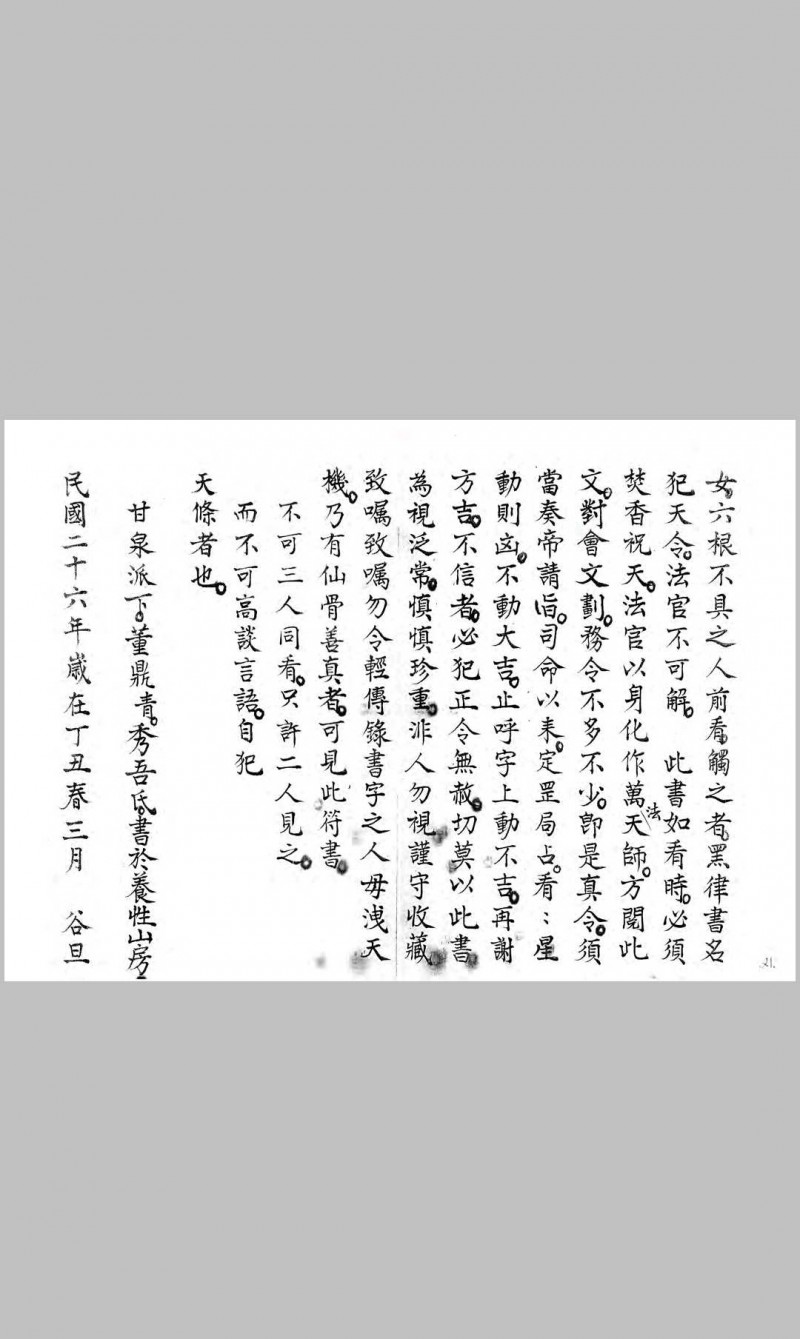 女。六根不具之人前看。觸之者。黑律書名
犯天令。法官不可解。　此書如看時。必須
焚香祝天。法官以身化作萬法天師。方閱此
文。對會文劃。務令不多不少。即是真令。須
當奏帝請旨。司命以来。定罡局占。看：星
動則凶。不動大吉。止呼字上動不吉。再謝
方吉。不信者。必犯正令無赦。切莫以此書
為視泛常。慎慎珍重。非人勿視謹守收藏
致嘱致嘱勿令輕傳錄書字之人毋洩天
機。乃有仙骨善真者。可見此符書。
不可三人同看。只許二人見之。
而不可高談言語。自犯
天條者也。
甘泉派下。董鼎青。秀吾氏。書於養性山房。
民國二十六年歲在丁丑春三月　谷旦
21.